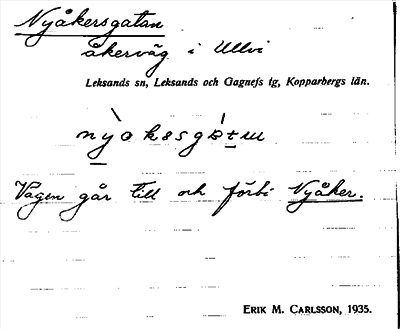 Nyåkersgatan
åkerväg i Ullvi
Leksands sn, Leksands och Gagnefs tg, Kopparbergs län.
Vägen går till och förbi Nyåker.
ERIK M. CARLSSON, 1935.